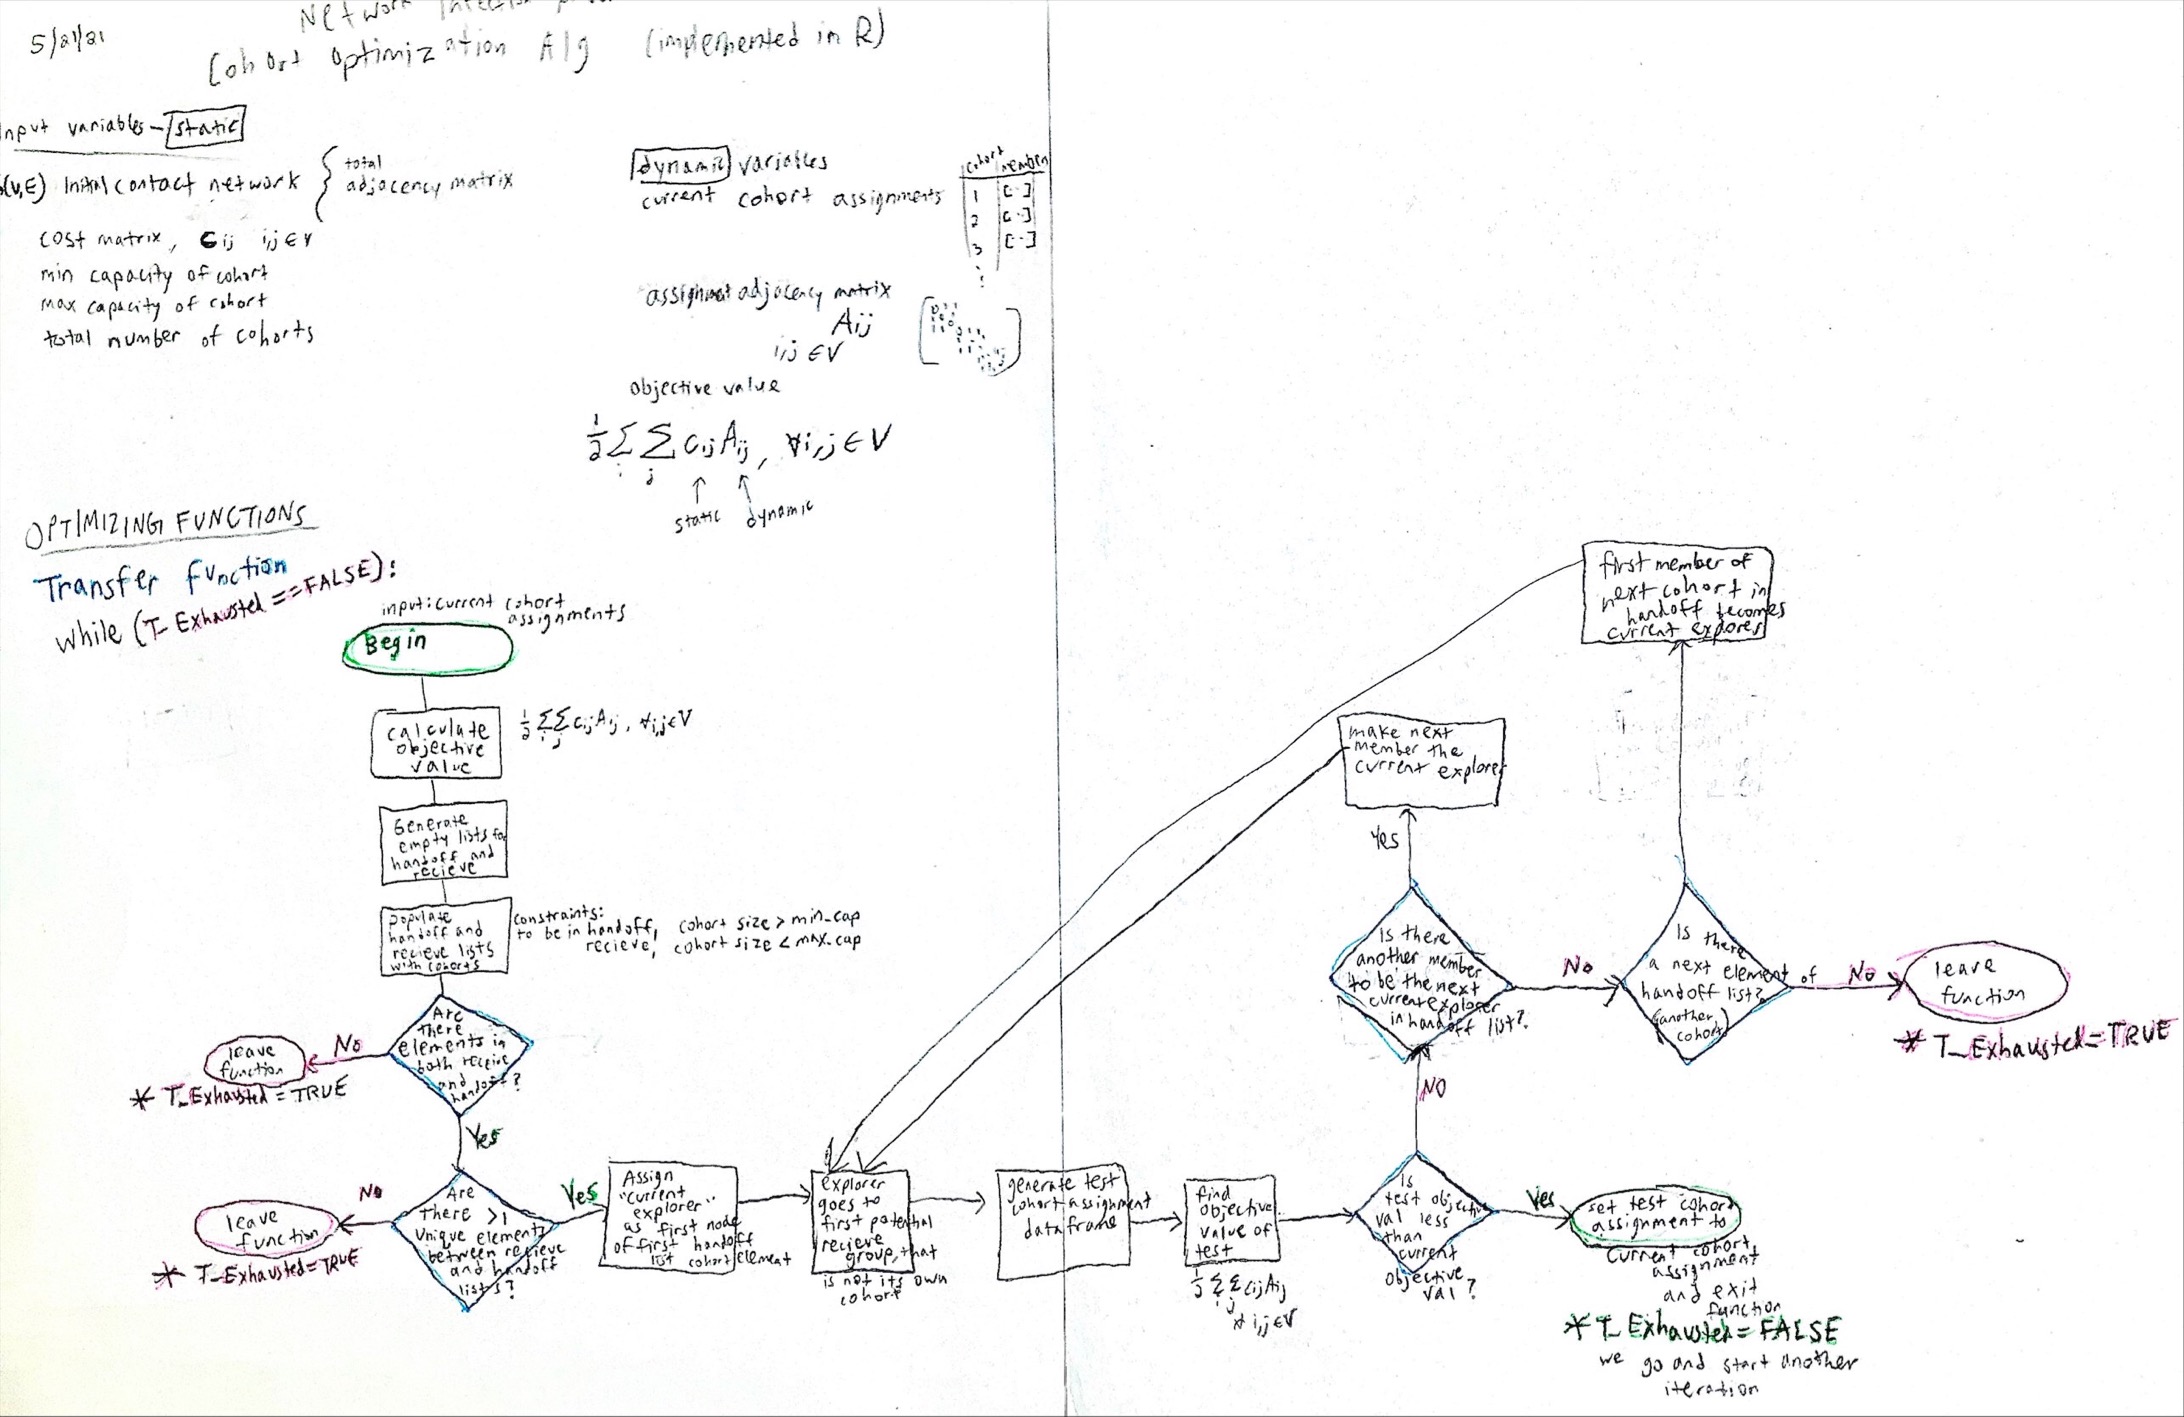 5/21/21
Network Infection
Cohort Optimization Alg (implemented in R)
Input variables - static
G(V,E) Initial contact network { total
adjacency matrix
cost matrix, Cij i,j ∈ V
min capacity of cohort
max capacity of cohort
total number of cohorts
dynamic variables
current cohort assignments
cohort member
1 [··]
2 [··]
3 [··]
assignment adjacency matrix
Aij
i,j ∈ V
objective value
1/2 Σi Σj Cij Aij, ∀i,j ∈ V
static dynamic
OPTIMIZING FUNCTIONS
Transfer Function
while (T_Exhausted == FALSE):
input: current cohort
assignments
Begin
calculate
objective
value
1/2 Σi Σj Cij Aij, ∀i,j ∈ V
Generate
empty lists for
handoff and
recieve
populate
handoff and
recieve lists
with cohorts
constraints:
to be in handoff, cohort size > min_cap
recieve, cohort size < max_cap
Are
there
elements in
both recieve
and
handoff?
No
leave
function
* T_Exhausted = TRUE
Yes
Are
there >1
unique elements
between recieve
and handoff
lists?
No
leave
function
* T_Exhausted = TRUE
Yes
Assign
"current
explorer"
as first node
of first handoff
list cohort element
explorer
goes to
first potential
recieve
group, that
is not its own
cohort
generate test
cohort assignment
data frame
find
objective
value of
test
1/2 Σi Σj Cij Aij
∀ i,j ∈ V
Is
test objective
val less
than
current
objective
val?
Yes
set test cohort
assignment to
current cohort
assignment
and exit
function
* T_Exhausted = FALSE
we go and start another
iteration
NO
Is there
another member
to be the next
current explorer
in handoff list?
Yes
make next
member the
current explorer
No
Is there
a next element of
handoff list?
(another
cohort)
first member of
next cohort in
handoff becomes
current explorer
No
leave
function
* T_Exhausted = TRUE